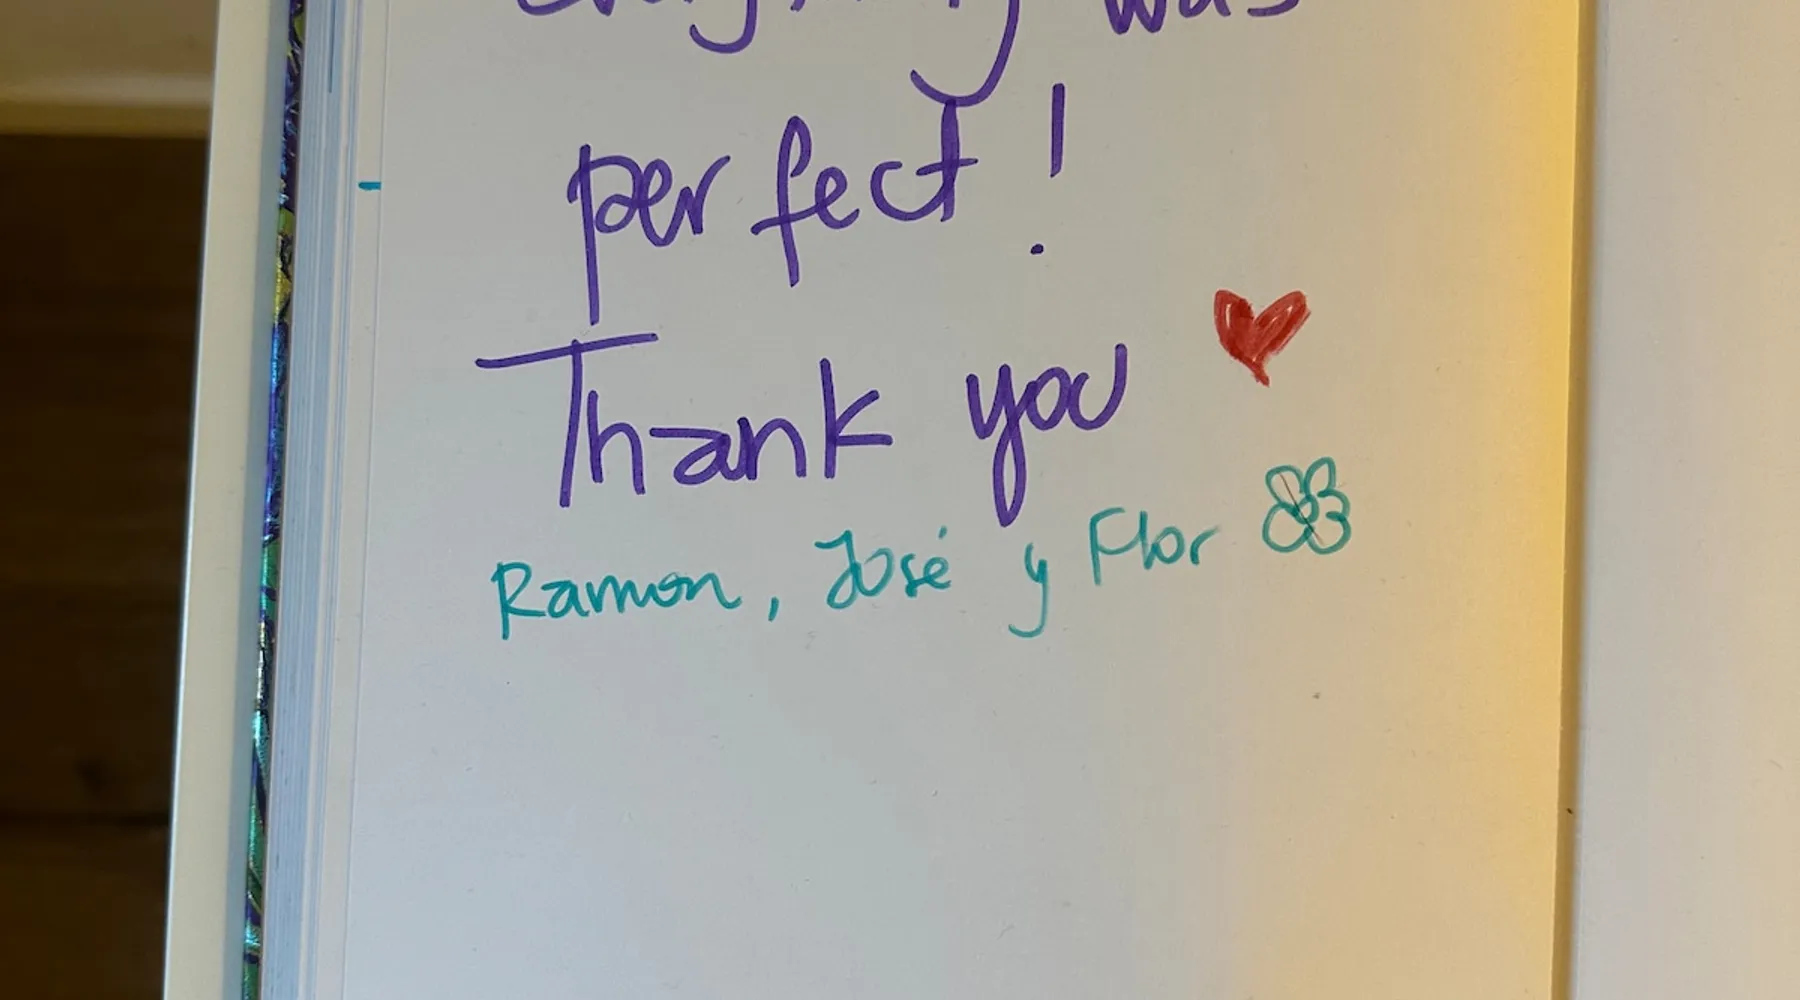 everything was
perfect!
Thank you
Ramon, José y Flor